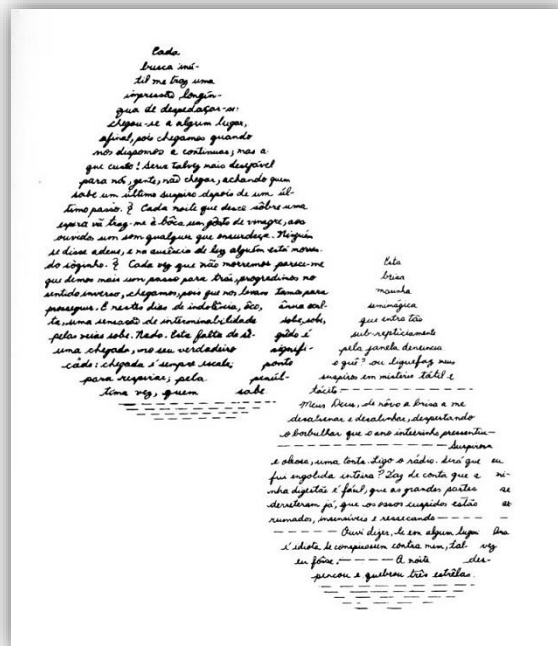 Cada
busca inú-
til me traz uma
impressão longín-
qua de despedaçar-se:
chegou-se a algum lugar,
afinal, pois chegamos quando
nos dispomos a continuar, mas a
que custo! Seria talvez mais desejável
para nós, gente, não chegar, achando quem
sabe um último suspiro depois de um úl-
timo passo. Cada noite que desce sôbre uma
espera vã traz-me à bôca um gôsto de vinagre, aos
ouvidos um som qualquer que ensurdeça. Ninguém
se disse adeus, e na ausência de luz alguém está morren-
do sòzinho. Cada vez que não morremos parece-me
que demos mais um passo para trás, progredimos no
sentido inverso, chegamos, pois que nos levam para
prosseguir. E nestes dias de indolência, ôco,
ta, uma sensação de interminabilidade sobe, sobe,
pelas veias sobe. Nada. Esta falta de si-
gnifi-
uma chegada, no seu verdadeiro
cado: chegada é sempre escala, ponto
para respirar, pela penúl-
tima vez, quem sabe
Esta
brisa
mansinha
seminágica
que entra tão
sub-repticiamente
pela janela denuncia
o quê? ou liquefaz meus
suspiros em mistério tátil e
tácito
Meus Deus, de nôvo a brisa a me
desatinar e desalinhar, despertando
o borbulhar que o ano inteirinho pressentiu
Suspirosa
e oleosa, uma tonta. Ligo o rádio. Será que eu
fui engolida inteira? Faz de conta que a mi-
nha digestão é fácil, que as grandes partes se
derreteram já, que os ossos cuspidos estão ar-
rumados, insensíveis e ressecando
Ouvi dizer, li em algum lugar
é idiota se conspirassem contra mim, tal vez
eu fôsse. A noite des-
pencou e quebrou três estrêlas.